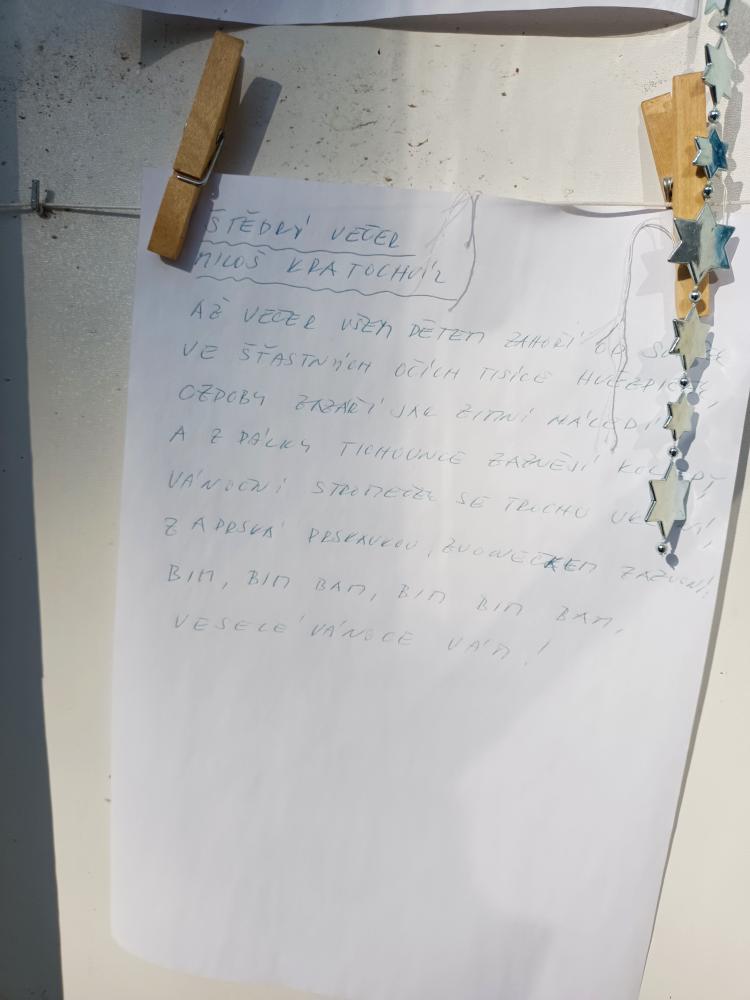 ŠTĚDRÝ VEČER
MILOŠ KRATOCHVÍL
AŽ VEČER VŠEM DĚTEM ZAHOŘÍ OD
VE ŠŤASTNÝCH OČÍCH TISÍCE
OZDOBY ZAZÁŘÍ JAK ZIMNÍ
A Z DÁLKY TICHOUNCE ZAZNĚJÍ
VÁNOČNÍ STROMEČEK SE TROCHU
ZAPRSKÁ PRSKAVKOU, ZVONEČKEM ZAZVONÍ:
BIM, BIM BAM, BIM BIM BAM,
VESELÉ VÁNOCE VÁM!